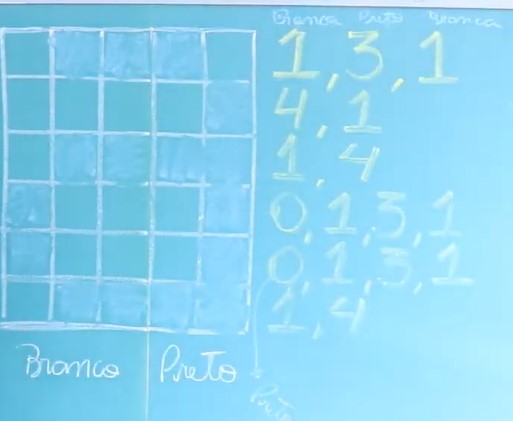 Branca Preto Branca
1, 3, 1
4, 1
1, 4
0, 1, 3, 1
0, 1, 3, 1
1, 4
Branco Preto
Preto